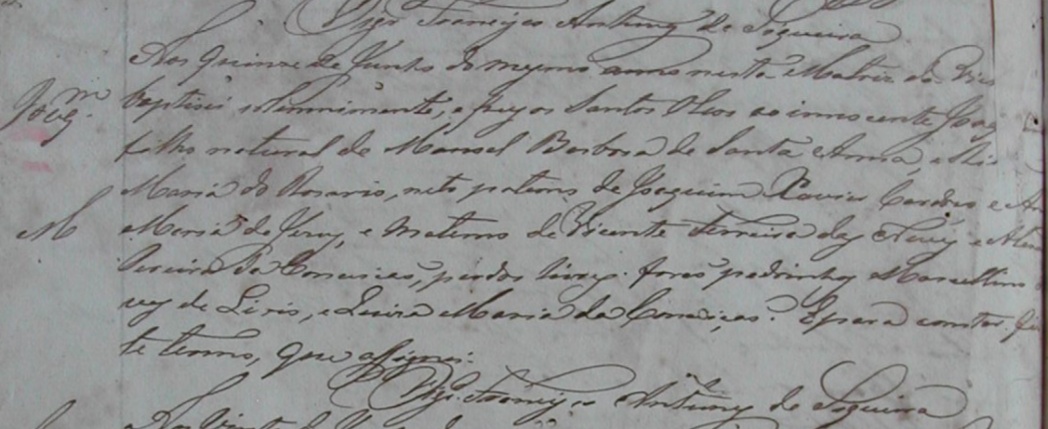 Vigr.º Francisco Antunes de Siqueira
Aos quinze de Junho do mesmo anno nesta Matriz da Vic
Joaq.m baptisei solemnimente, e puz os Santos Oleos ao innocente Joaq
filho natural de Manoel Barbosa de Santa Anna, e
Maria do Rosario, neto paterno de Joaquim Xavier Cardoso e
M Maria de Jesus, e materno de Vicente Ferreira das Neves e
Pereira da Conceicaõ, pardos livres. foraõ padrinhos Marcellino
de Liris, e Luiza Maria da Conceiçaõ. E para constar
te termo, que assignei.
Vigr.º Francisco Antunes de Siqueira
Aos vinte